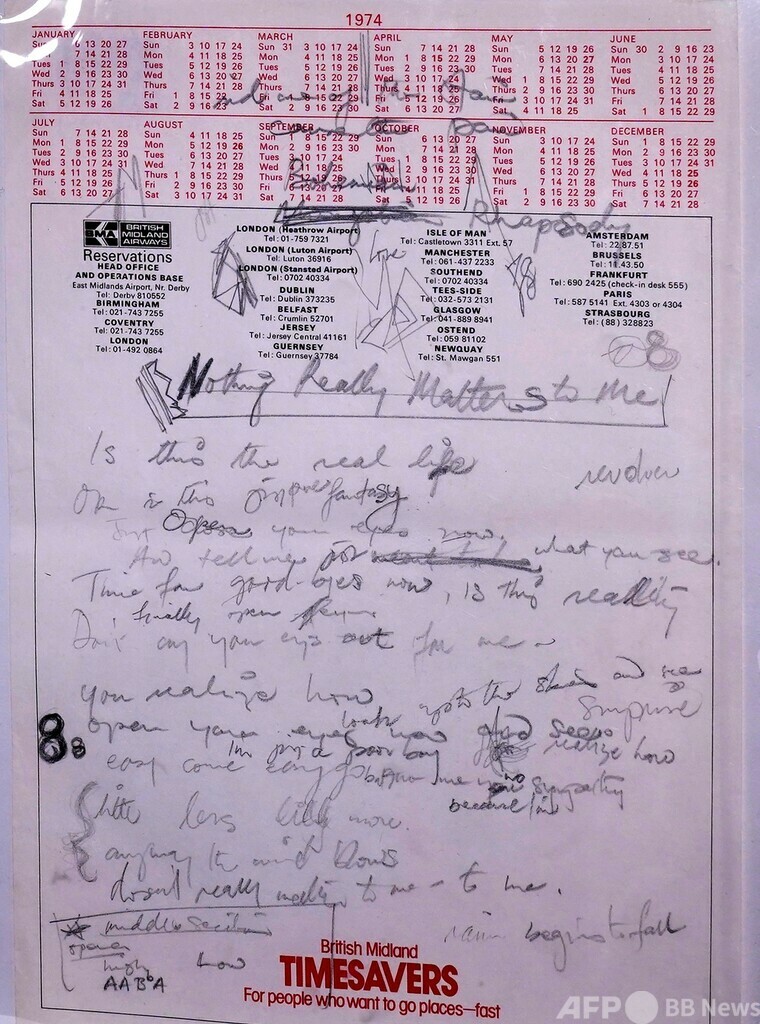 1974
JANUARY
Sun 6 13 20 27
Mon 7 14 21 28
Tues 1 8 15 22 29
Wed 2 9 16 23 30
Thurs 3 10 17 24 31
Fri 4 11 18 25
Sat 5 12 19 26
FEBRUARY
Sun 3 10 17 24
Mon 4 11 18 25
Tues 5 12 19 26
Wed 6 13 20 27
Thurs 7 14 21 28
Fri 1 8 15 22
Sat 2 9 16 23
MARCH
Sun 31 3 10 17 24
Mon 4 11 18 25
Tues 5 12 19 26
Wed 6 13 20 27
Thurs 7 14 21 28
APRIL
Sun 7 14 21 28
Mon 1 8 15 22 29
Tues 2 9 16 23 30
Wed 3 10 17 24
MAY
Sun 5 12 19 26
Mon 6 13 20 27
Tues 7 14 21 28
Wed 1 8 15 22 29
Thurs 2 9 16 23 30
Fri 3 10 17 24 31
Sat 4 11 18 25
JUNE
Sun 30 2 9 16 23
Mon 3 10 17 24
Tues 4 11 18 25
Wed 5 12 19 26
Thurs 6 13 20 27
Fri 7 14 21 28
Sat 1 8 15 22 29
JULY
Sun 7 14 21 28
Mon 1 8 15 22 29
Tues 2 9 16 23 30
Wed 3 10 17 24 31
Thurs 4 11 18 25
Fri 5 12 19 26
Sat 6 13 20 27
AUGUST
Sun 4 11 18 25
Mon 5 12 19 26
Tues 6 13 20 27
Wed 7 14 21 28
Thurs 1 8 15 22 29
Fri 2 9 16 23 30
Sat 3 10 17 24 31
SEPTEMBER
OCTOBER
Sun 6 13 20 27
NOVEMBER
Sun 3 10 17 24
Mon 4 11 18 25
Tues 5 12 19 26
Wed 6 13 20 27
Thurs 7 14 21 28
Fri 1 8 15 22 29
Sat 2 9 16 23 30
DECEMBER
Sun 1 8 15 22 29
Mon 2 9 16 23 30
Tues 3 10 17 24 31
Wed 4 11 18 25
Thurs 5 12 19 26
Fri 6 13 20 27
Sat 7 14 21 28
Bohemian
Rhapsody
BMA BRITISH MIDLAND AIRWAYS
Reservations
HEAD OFFICE
AND OPERATIONS BASE
East Midlands Airport, Nr. Derby
Tel: Derby 810552
BIRMINGHAM
Tel: 021-743 7255
COVENTRY
Tel: 021-743 7255
LONDON
Tel: 01-492 0864
LONDON (Heathrow Airport)
Tel: 01-759 7321
LONDON (Luton Airport)
Tel: Luton 36916
LONDON (Stansted Airport)
Tel: 0702 40334
DUBLIN
Tel: Dublin 373235
BELFAST
Tel: Crumlin 52701
JERSEY
Tel: Jersey Central 41161
GUERNSEY
Tel: Guernsey 37784
love
ISLE OF MAN
Tel: Castletown 3311 Ext. 57
MANCHESTER
Tel: 061-437 2233
SOUTHEND
Tel: 0702 40334
TEES-SIDE
Tel: 032-573 2131
GLASGOW
Tel: 041-889 8941
OSTEND
Tel: 059 81102
NEWQUAY
Tel: St. Mawgan 551
AMSTERDAM
Tel: 22.87.51
BRUSSELS
Tel: 11.43.50
FRANKFURT
Tel: 690 2425 (check-in desk 555)
PARIS
Tel: 587 5141 Ext. 4303 or 4304
STRASBOURG
Tel: (88) 328823
Nothing Really Matters to Me
Is this the real life
revolver
Or is this just fantasy
Just Open your eyes now.
And tell me what you see.
Time for good-byes now, is this reality
finally open
Don't cry your eyes out for me
you realize how
look up to the skies and see
surprise
open your eyes now
realize how
I'm just a poor boy
easy come easy go
no sympathy
because I'm
little less little more.
anyway the wind blows
doesn't really matter to me - to me.
middle section
opera
high low
AABbA
rain begins to fall
British Midland
TIMESAVERS
For people who want to go places—fast
AFP BB News